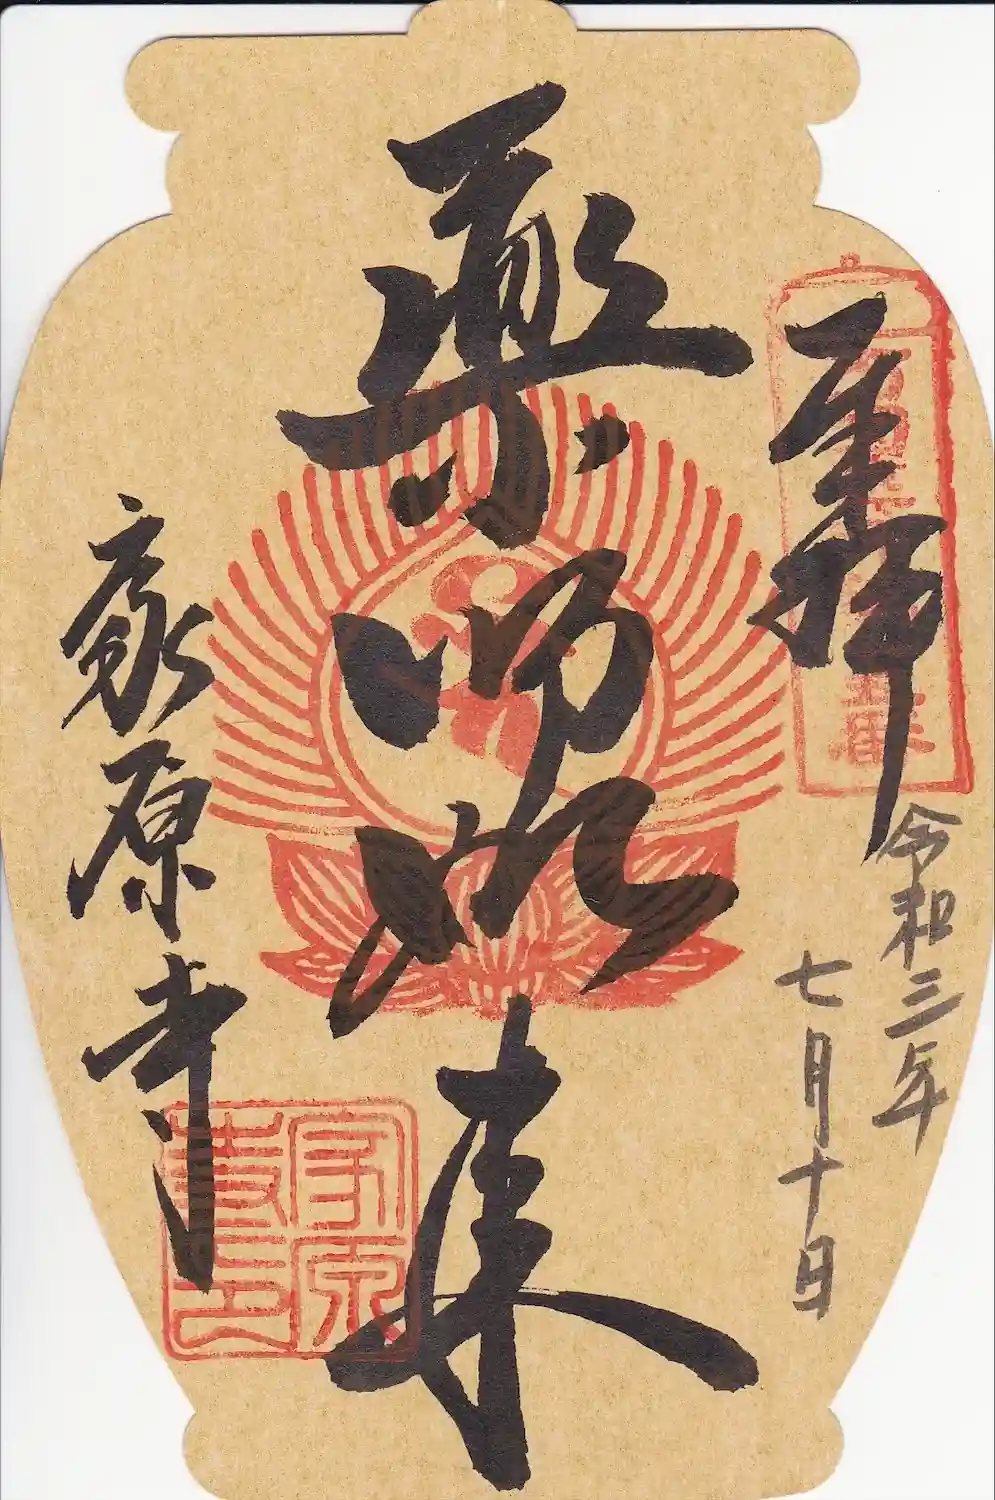 奉拝
令和三年
七月十日
薬師如来
家原寺
家原寺印